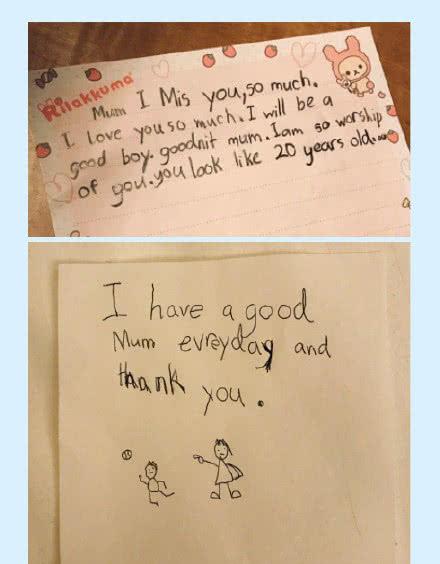 Rilakkuma
Mum I Mis you,so much.
I love you so much.I will be a
good boy.goodnit mum.Iam so worship
of you.you look like 20 years old....
I have a good
Mum evreyday and
thank you.